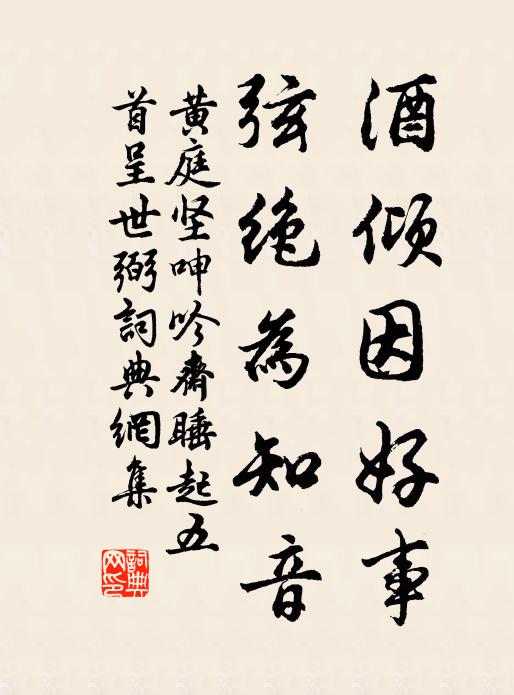 酒倾因好事
弦绝為知音
黄庭坚呻吟齋睡起五
首呈世弼詞典網集
詞典网印